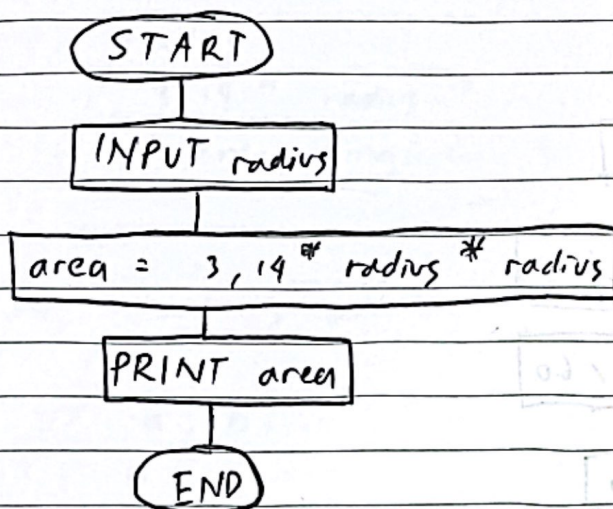 START
INPUT radius
area = 3,14 * radius * radius
PRINT area
END